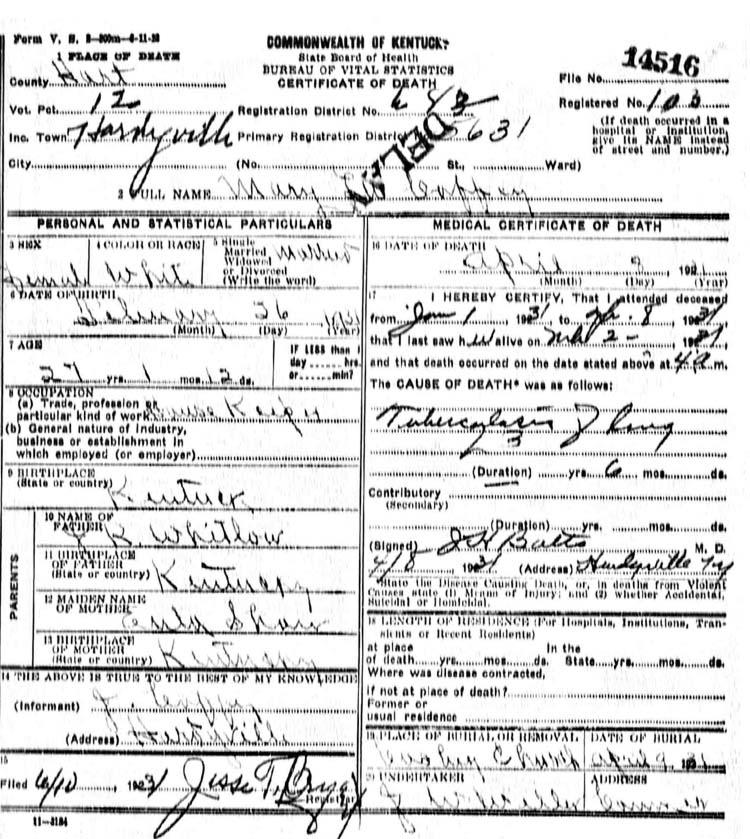 Form V. S.
COMMONWEALTH OF KENTUCKY
1 PLACE OF DEATH
State Board of Health
14516
BUREAU OF VITAL STATISTICS
County Hart
CERTIFICATE OF DEATH
File No.
Vot. Pct. 12
Registration District No. 643
Registered No. 103
Inc. Town Hardyville
Primary Registration District No. 5631
(If death occurred in a hospital or institution, give its NAME instead of street and number.)
City (No. St., Ward)
DELAY
2 FULL NAME Mary Coffey
PERSONAL AND STATISTICAL PARTICULARS
3 SEX
Female
4 COLOR OR RACE
White
5 Single
Married
Widowed
or Divorced
(Write the word)
Married
6 DATE OF BIRTH
February 26
(Month) (Day) (Year)
7 AGE
27 yrs. 1 mos. 12 ds.
IF LESS than 1
day hrs.
or min?
8 OCCUPATION
(a) Trade, profession or
particular kind of work House Keeper
(b) General nature of Industry,
business or establishment in
which employed (or employer)
9 BIRTHPLACE
(State or country)
Kentucky
PARENTS
10 NAME OF
FATHER
Whitlow
11 BIRTHPLACE
OF FATHER
(State or country)
Kentucky
12 MAIDEN NAME
OF MOTHER
Shaw
13 BIRTHPLACE
OF MOTHER
(State or country)
Kentucky
14 THE ABOVE IS TRUE TO THE BEST OF MY KNOWLEDGE
(Informant) J. Coffey
(Address) Hardyville
15
Filed 6/10 1931 Jesse T.
Registrar
11-3184
MEDICAL CERTIFICATE OF DEATH
16 DATE OF DEATH
April
(Month) (Day) (Year)
17
I HEREBY CERTIFY, That I attended deceased
from Jan 1 1931 to Apr. 8 1931
that I last saw her alive on 2 - 1931
and that death occurred on the date stated above at 4 a m.
The CAUSE OF DEATH* was as follows:
Tuberculosis of Lung
(Duration) yrs. 6 mos. ds.
Contributory
(Secondary)
(Duration) yrs. mos. ds.
(Signed) Batts M. D.
4/8 1931 (Address) Hardyville Ky
*State the Disease Causing Death, or, in deaths from Violent
Causes state (1) Means of Injury; and (2) whether Accidental,
Suicidal or Homicidal.
18 LENGTH OF RESIDENCE (For Hospitals, Institutions, Tran-
sients or Recent Residents)
at place In the
of death yrs. mos. ds. State yrs. mos. ds.
Where was disease contracted,
if not at place of death?
Former or
usual residence
19 PLACE OF BURIAL OR REMOVAL
Church
DATE OF BURIAL
April 9 1931
20 UNDERTAKER
ADDRESS